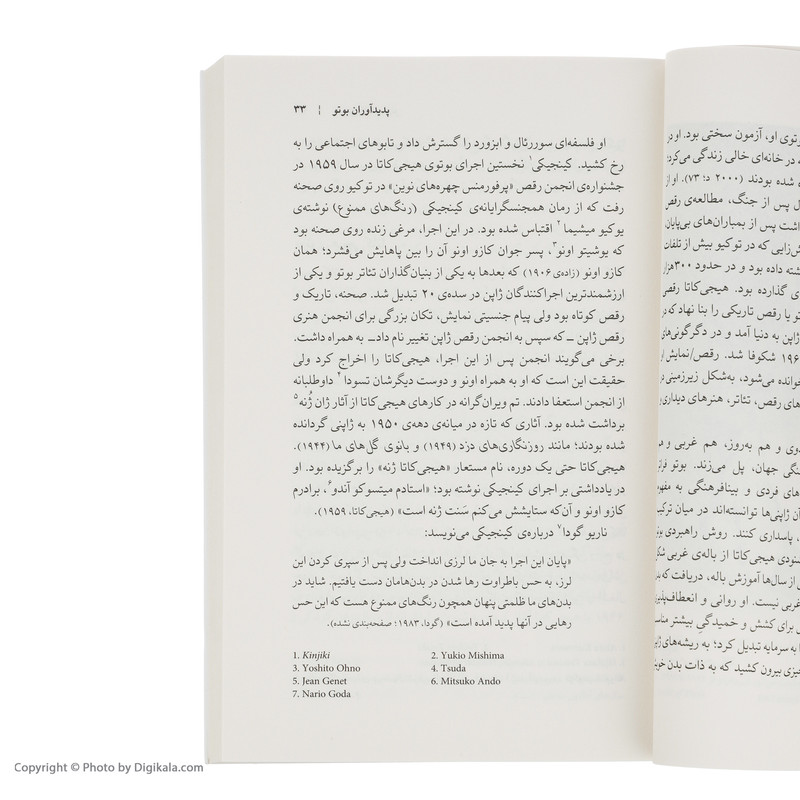 پدیدآوران بوتو ¦ ۳۳
او فلسفه‌ای سوررئال و ابزورد را گسترش داد و تابوهای اجتماعی را به
رخ کشید. کینجیکی۱ نخستین اجرای بوتوی هیجی‌کاتا در سال ۱۹۵۹ در
جشنواره‌ی انجمن رقص «پرفورمنس چهره‌های نوین» در توکیو روی صحنه
رفت که از رمان همجنسگرایانه‌ی کینجیکی (رنگ‌های ممنوع) نوشته‌ی
یوکیو میشیما۲ اقتباس شده بود. در این اجرا، مرغی زنده روی صحنه بود
که یوشیتو اونو۳، پسر جوان کازو اونو آن را بین پاهایش می‌فشرد؛ همان
کازو اونو (زاده‌ی ۱۹۰۶) که بعدها به یکی از بنیان‌گذاران تئاتر بوتو و یکی از
ارزشمندترین اجراکنندگان ژاپن در سده‌ی ۲۰ تبدیل شد. صحنه، تاریک و
رقص کوتاه بود ولی پیام جنسیتی نمایش، تکان بزرگی برای انجمن هنری
رقص ژاپن ــ که سپس به انجمن رقص ژاپن تغییر نام داد ــ به همراه داشت.
برخی می‌گویند انجمن پس از این اجرا، هیجی‌کاتا را اخراج کرد ولی
حقیقت این است که او به همراه اونو و دوست دیگرشان تسودا۴ داوطلبانه
از انجمن استعفا دادند. تم ویران‌گرانه در کارهای هیجی‌کاتا از آثار ژان ژُنه۵
برداشت شده بود. آثاری که تازه در میانه‌ی دهه‌ی ۱۹۵۰ به ژاپنی گردانده
شده بودند؛ مانند روزنگاری‌های دزد (۱۹۴۹) و بانوی گل‌های ما (۱۹۴۴).
هیجی‌کاتا حتی یک دوره، نام مستعار «هیجی‌کاتا ژنه» را برگزیده بود. او
در یادداشتی بر اجرای کینجیکی نوشته بود؛ «استادم میتسوکو آندو۶، برادرم
کازو اونو و آن‌که ستایشش می‌کنم سَنت ژنه است» (هیجی‌کاتا، ۱۹۵۹).
ناریو گودا۷ درباره‌ی کینجیکی می‌نویسد:
«پایان این اجرا به جان ما لرزی انداخت ولی پس از سپری کردن این
لرز، به حس باطراوت رها شدن در بدن‌هامان دست یافتیم. شاید در
بدن‌های ما ظلمتی پنهان همچون رنگ‌های ممنوع هست که این حس
رهایی در آنها پدید آمده است» (گودا، ۱۹۸۳؛ صفحه‌بندی نشده).
1. Kinjiki 2. Yukio Mishima
3. Yoshito Ohno 4. Tsuda
5. Jean Genet 6. Mitsuko Ando
7. Nario Goda
او، آزمون سختی بود. او در
در خانه‌ای خالی زندگی می‌کرد؛
شده بودند (۲۰۰۰ د: ۷۳). او از
پس از جنگ، مطالعه‌ی رقص
داشت پس از بمباران‌های بی‌پایان،
که در توکیو بیش از تلفات
داده بود و در حدود ۳۰۰هزار
گذارده بود. هیجی‌کاتا رقص
با رقص تاریکی را بنا نهاد که در
ژاپن به دنیا آمد و در دگرگونی‌های
شکوفا شد. رقص/نمایش او
خوانده می‌شود، به‌شکل زیرزمینی در
رقص، تئاتر، هنرهای دیداری و
و هم به‌روز، هم غربی و هم
جهان، پل می‌زند. بوتو
فردی و بینافرهنگی به
آن ژاپنی‌ها توانسته‌اند در میان
پاسداری کنند. روش راهبردی
هیجی‌کاتا از باله‌ی غربی
از سال‌ها آموزش باله، دریافت که
غربی نیست. او روانی و
برای کشش و خمیدگی بیشتر
به سرمایه تبدیل کرد؛ به ریشه‌های
بیرون کشید که به ذات بدن
Copyright © Photo by Digikala.com